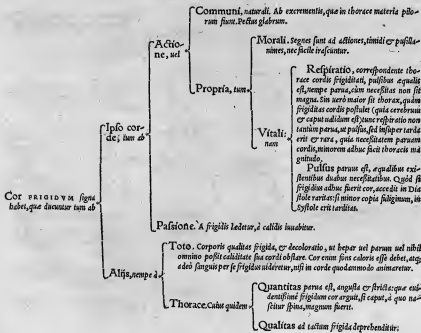 Communi, naturali. Ab excrementis, quæ in thorace materia pilo-
rum fiunt. Pectus glabrum.
Actio-
ne, uel
Morali. Segnes sunt ad actiones, timidi & pusilla-
nimes, nec facile irascuntur.
Propria, tum
Respiratio, correspondente tho-
race cordis frigiditati, pulsibus æqualis
est, nempe parua, cum necessitas non sit
magna. Sin uerò maior sit thorax, quàm
frigiditas cordis postulet (quia cerebrum
& caput ualidum est) tunc respiratio non
tantum parua, ut pulsus, sed insuper tarda
erit & rara, quia necessitatem paruam
cordis, minorem adhuc facit thoracis ma
gnitudo.
Vitali:
nam
Pulsus paruus est, æqualibus exi-
stentibus duabus necessitatibus. Quòd si
frigidius adhuc fuerit cor, accedit in Dia
stole raritas: si minor copia fuliginum, in
Systole erit tarditas.
Ipso cor-
de, tum ab
Passione. A frigidis læditur, à calidis iuuabitur.
Cor FRIGIDVM signa
habet, quæ ducuntur tum ab
Toto. Corporis qualitas frigida, & decoloratio, ut hepar uel parum uel nihil
omnino possit caliditate sua cordi obstare. Cor enim fons caloris esse debet, atq;
adeò sanguis per se frigidus uideretur, nisi in corde quodammodo animaretur.
Alijs, nempe à
Thorace. Cuius quidem
Quantitas parua est, angusta & stricta: quæ eui-
dentissimè frigidum cor arguit, si caput, à quo na-
scitur spina, magnum fuerit.
Qualitas ad tactum frigida deprehenditur: